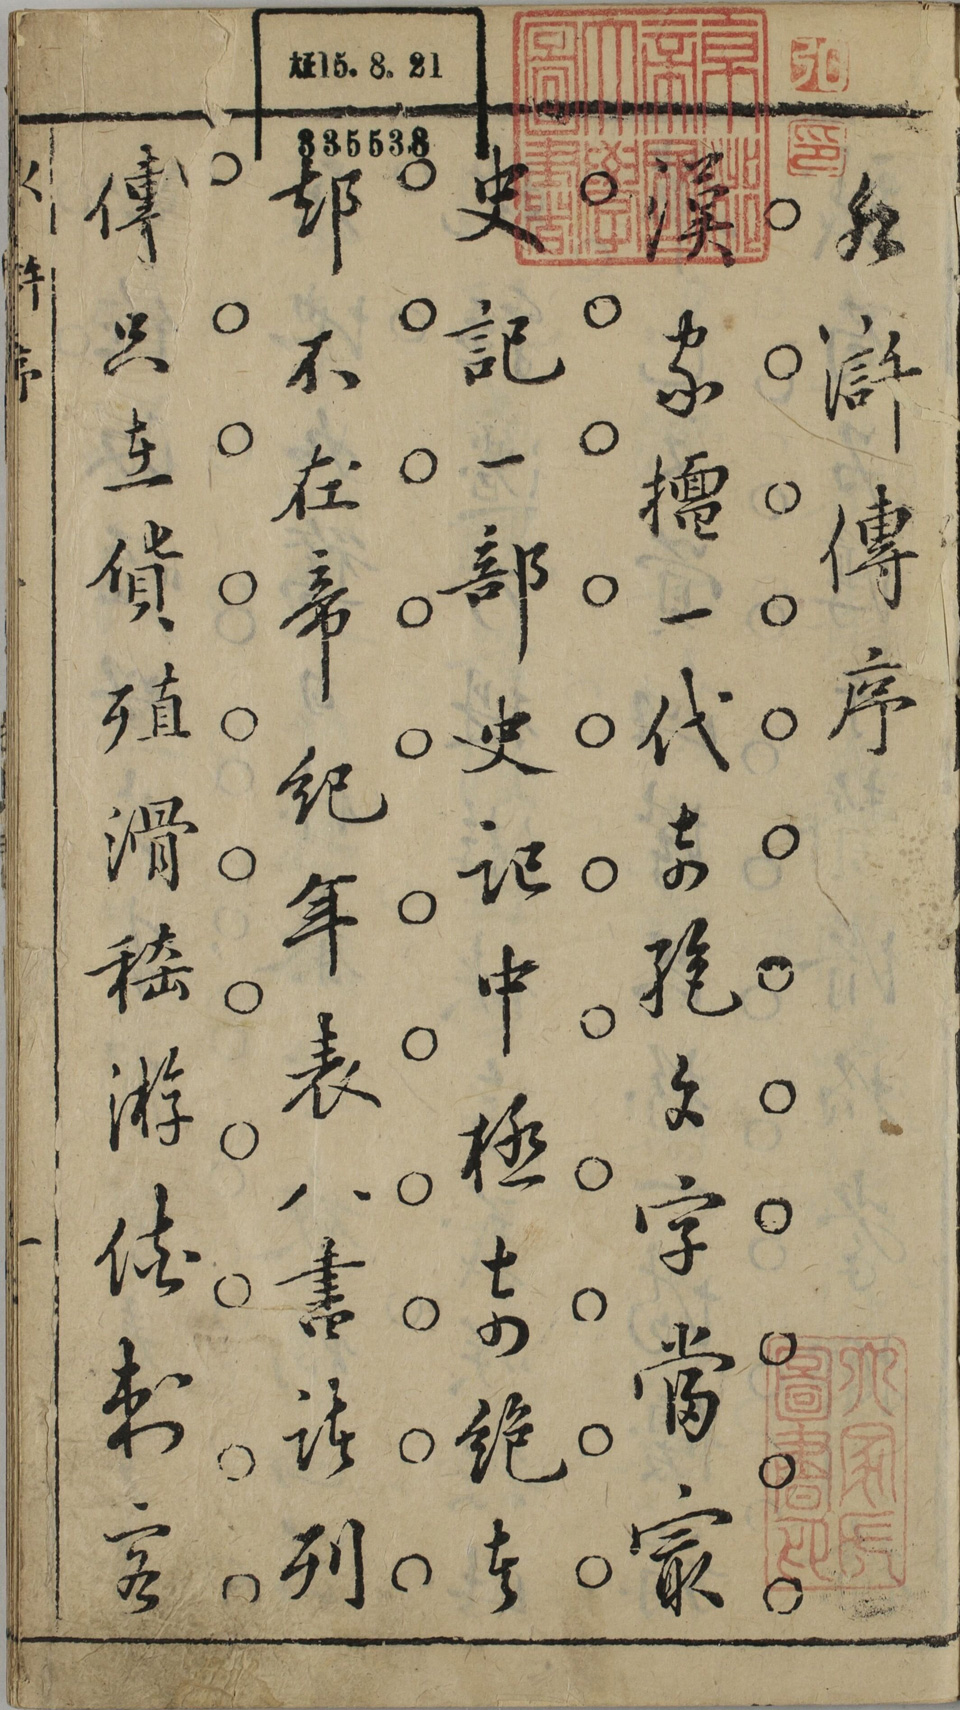 水滸傳序
漢家擅一代奇絕文字當最
史記一部史記中極奇絕者
却不在帝紀年表八書諸列
傳只在貨殖滑稽游俠刺客
大正15.8.21
835538
京都帝國大學圖書之印
大家氏圖書印